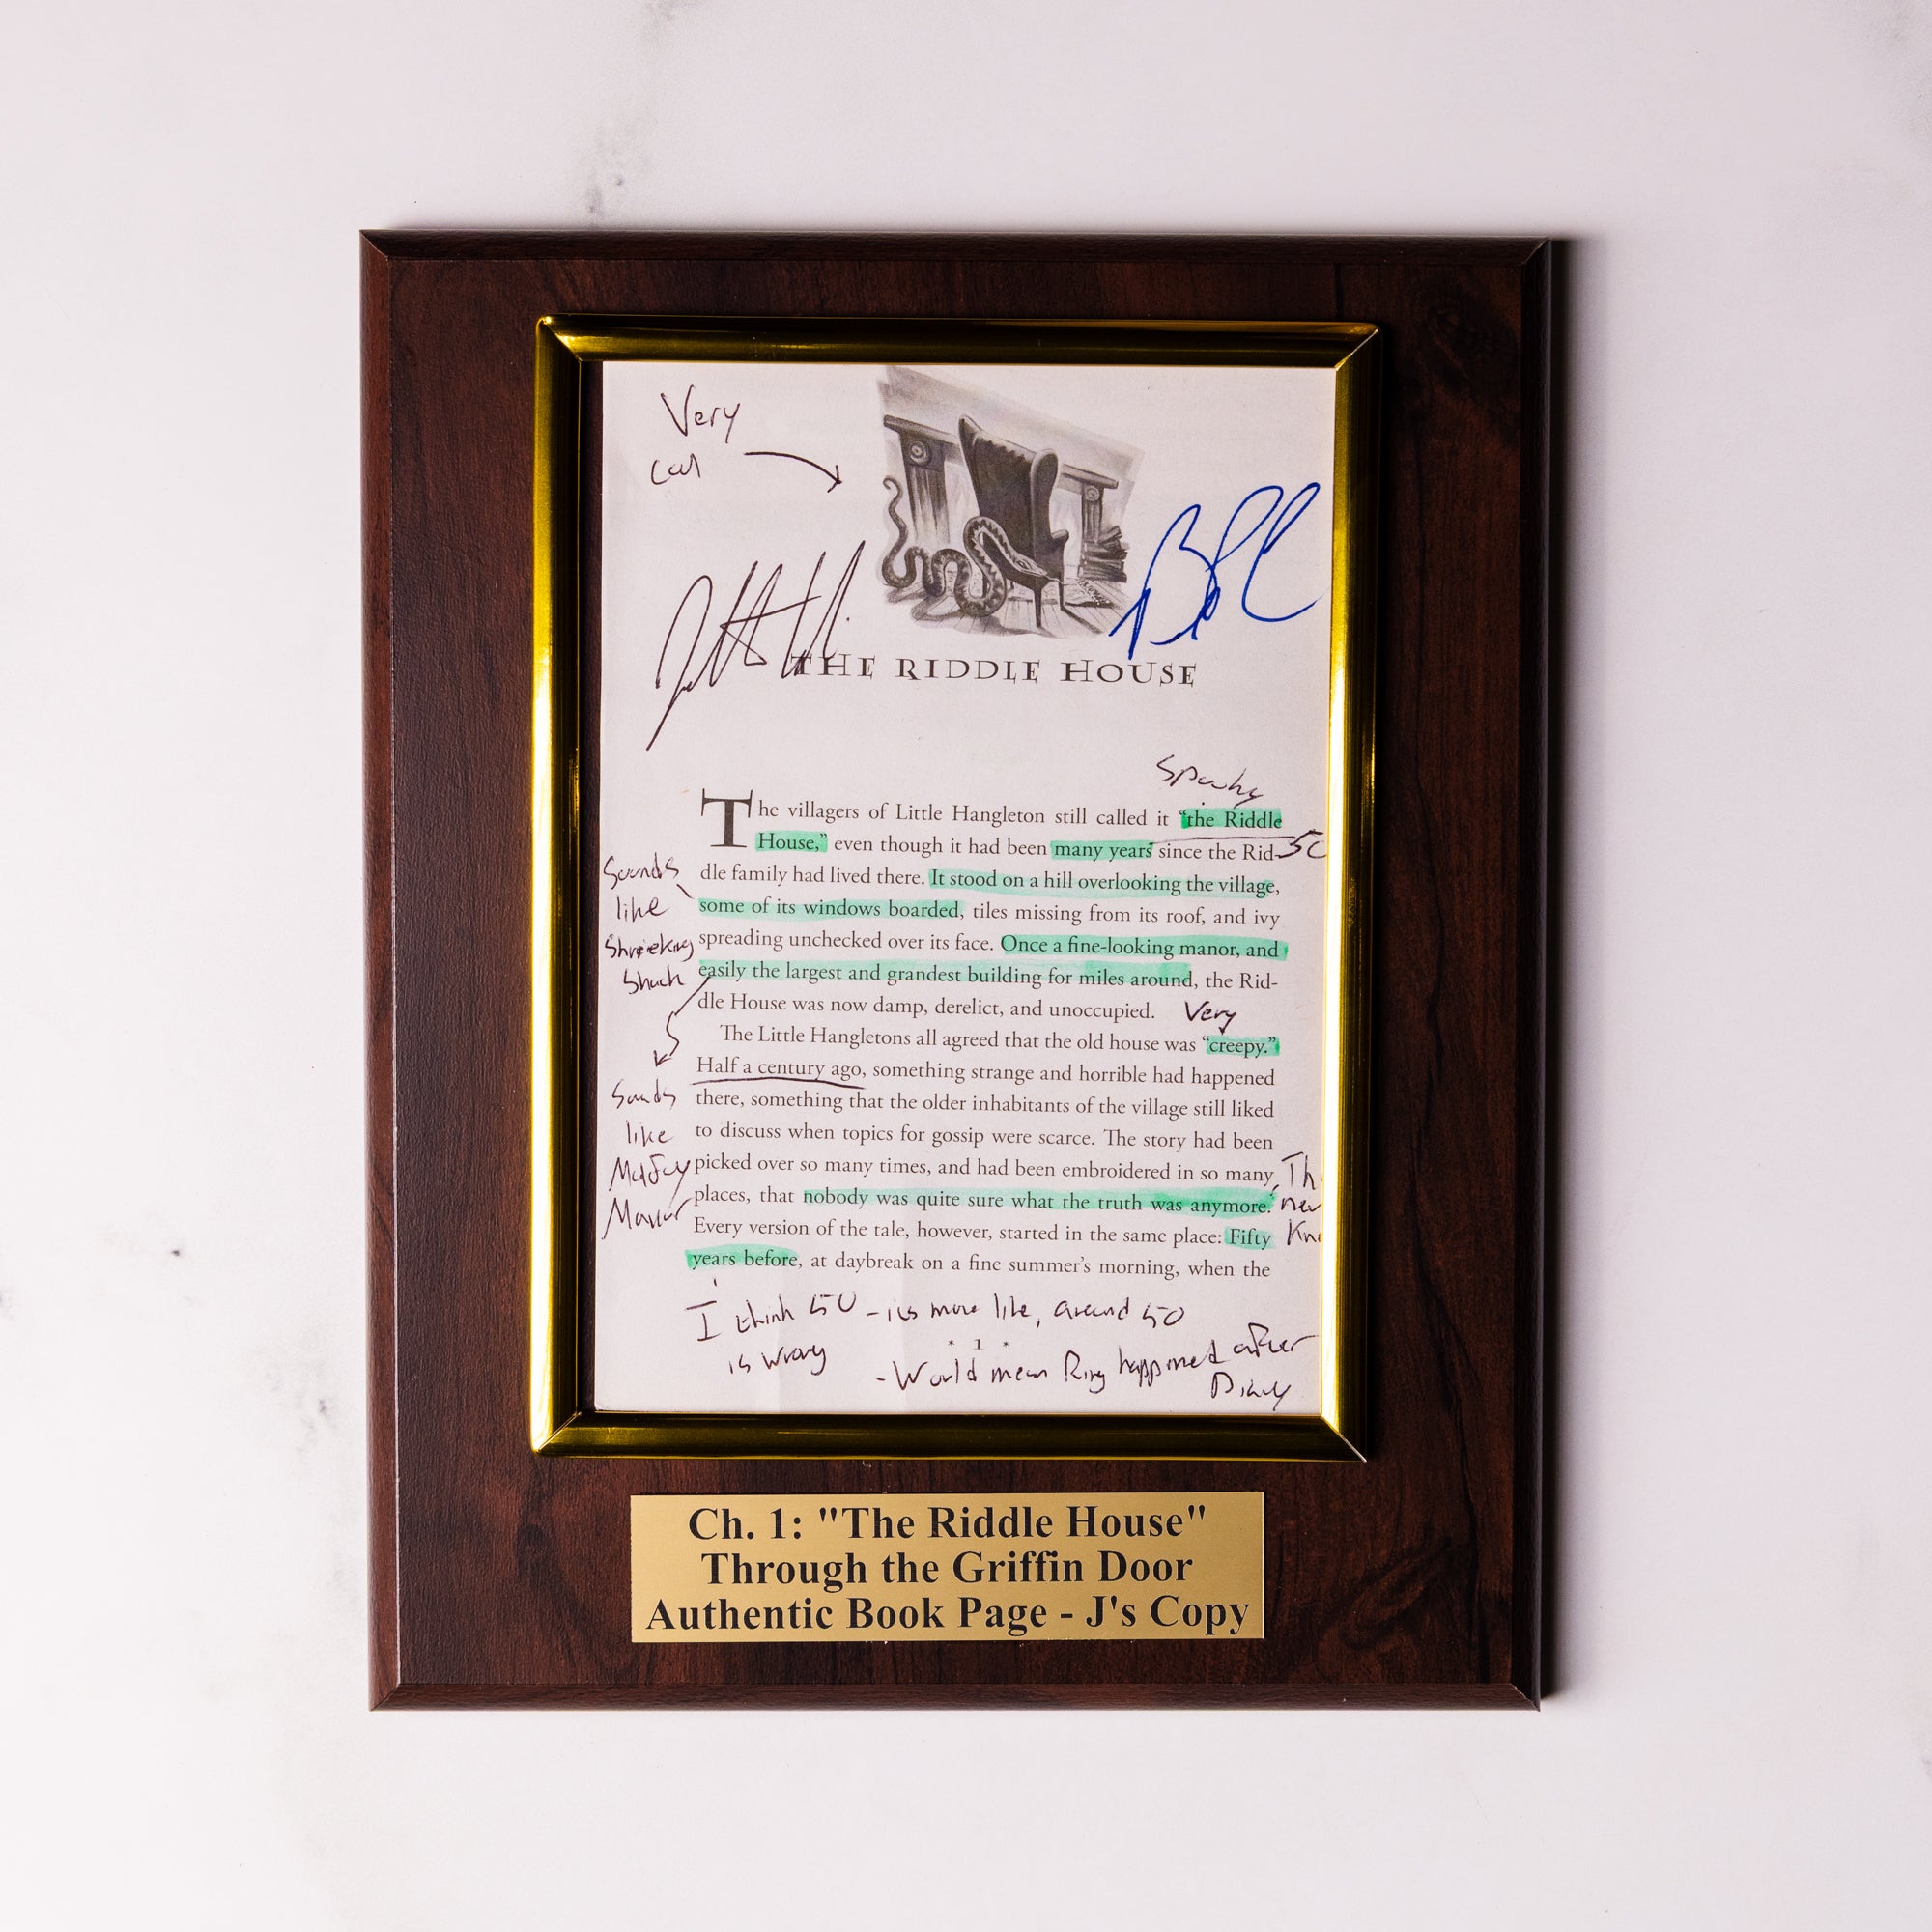 Very
cool
THE RIDDLE HOUSE
Spooky
The villagers of Little Hangleton still called it “the Riddle
House,” even though it had been many years since the Rid-
50
dle family had lived there. It stood on a hill overlooking the village,
some of its windows boarded, tiles missing from its roof, and ivy
spreading unchecked over its face. Once a fine-looking manor, and
easily the largest and grandest building for miles around, the Rid-
dle House was now damp, derelict, and unoccupied.
Sounds
like
Shrieking
Shack
Very
The Little Hangletons all agreed that the old house was “creepy.”
Half a century ago, something strange and horrible had happened
there, something that the older inhabitants of the village still liked
to discuss when topics for gossip were scarce. The story had been
picked over so many times, and had been embroidered in so many
places, that nobody was quite sure what the truth was anymore.
Every version of the tale, however, started in the same place: Fifty
years before, at daybreak on a fine summer’s morning, when the
Sounds
like
Malfoy
Manor
I think 50 - its more like, around 50
is wrong
* 1 *
- Would mean Ring happened after
Diary
Ch. 1: "The Riddle House"
Through the Griffin Door
Authentic Book Page - J's Copy